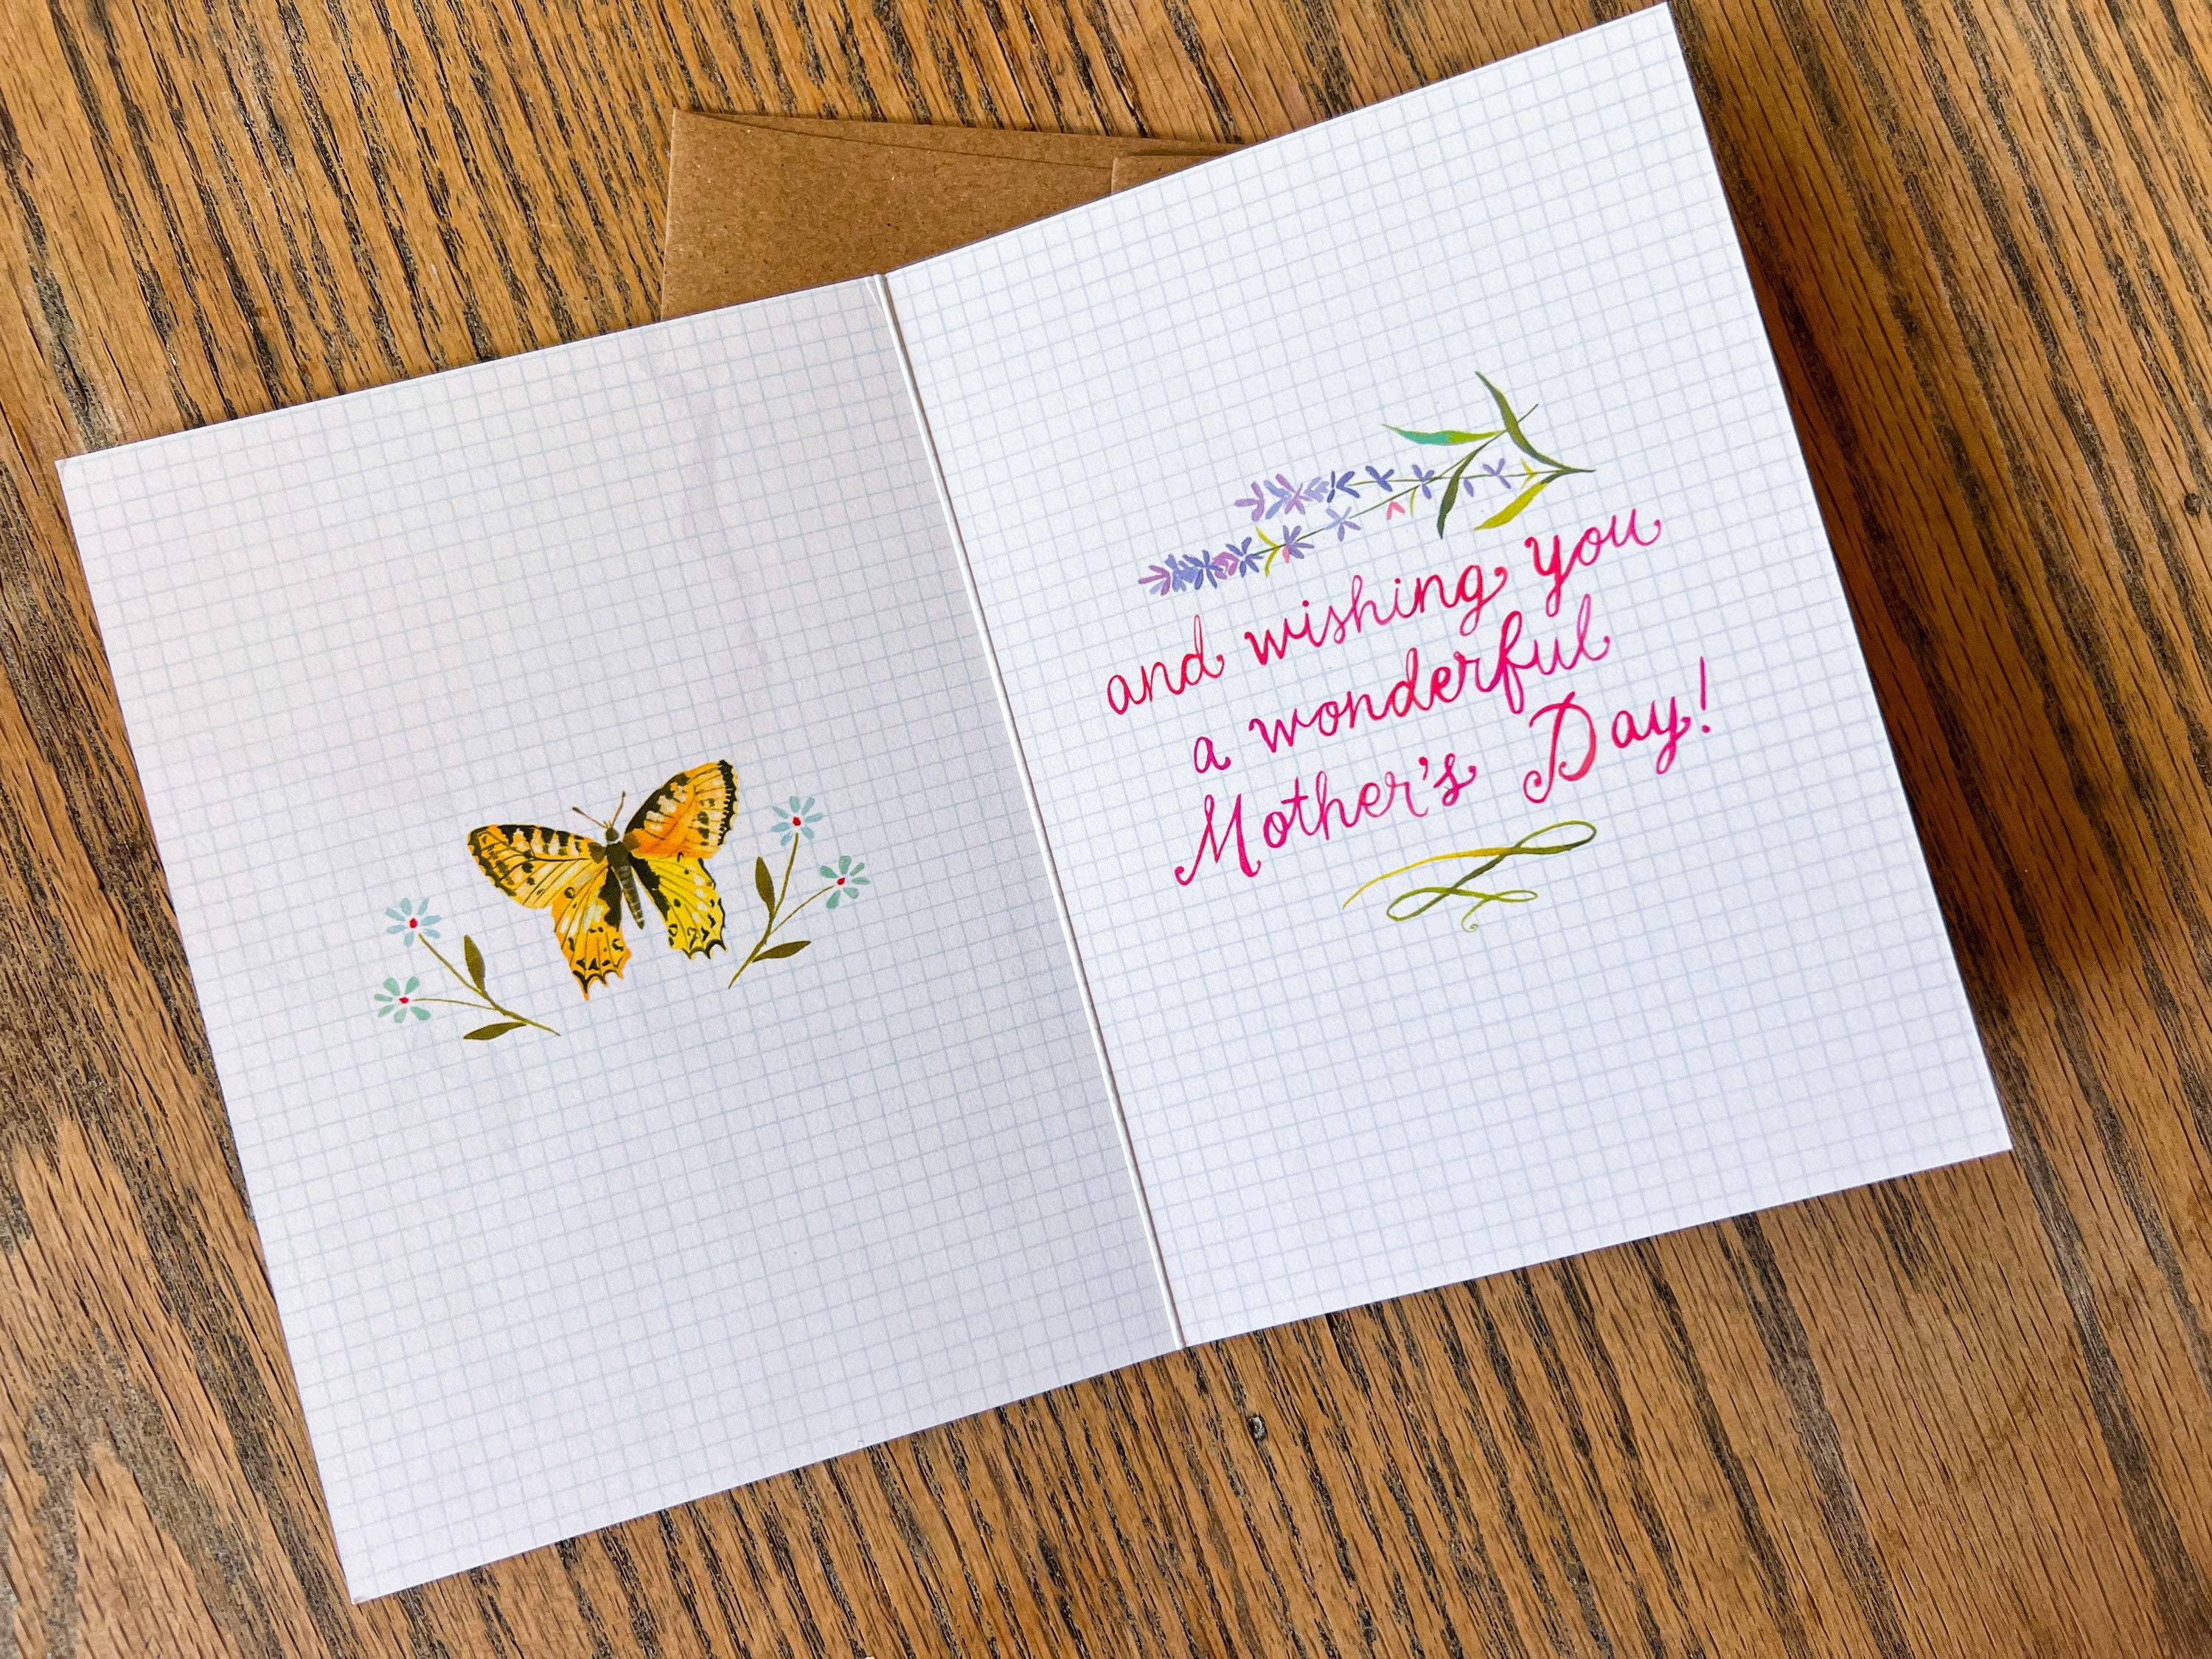 and wishing you
a wonderful
Mother's Day!